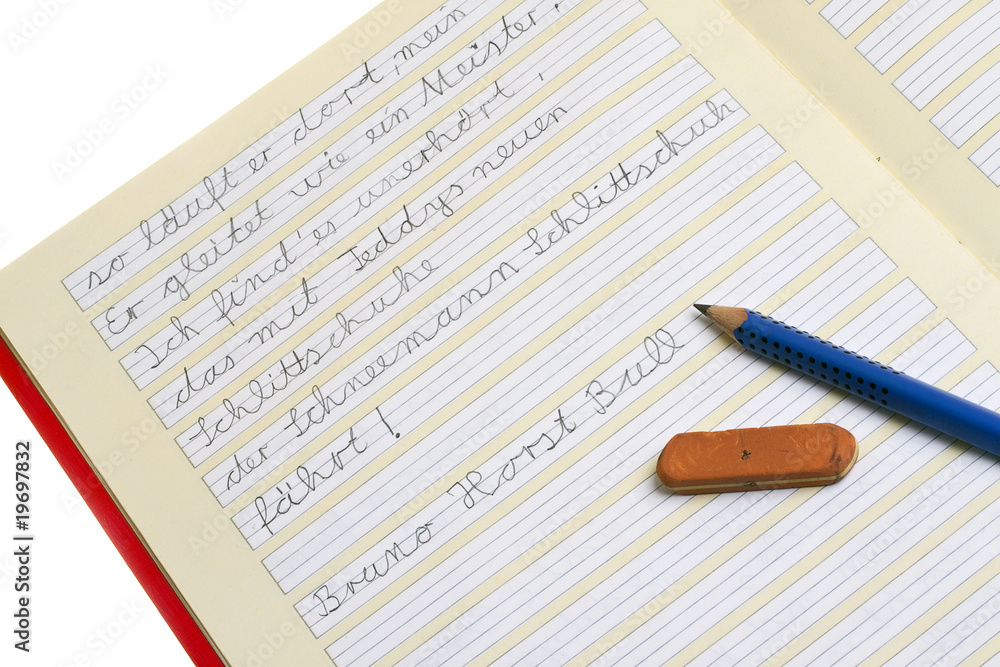 so läuft er dort, mein
Er gleitet wie ein Meister,
Ich find' es unerhört,
das mit Teddys neuen
Schlittschuhe
der Schneemann Schlittschuh
fährt!
Bruno Horst Bull
Adobe Stock | #19697832